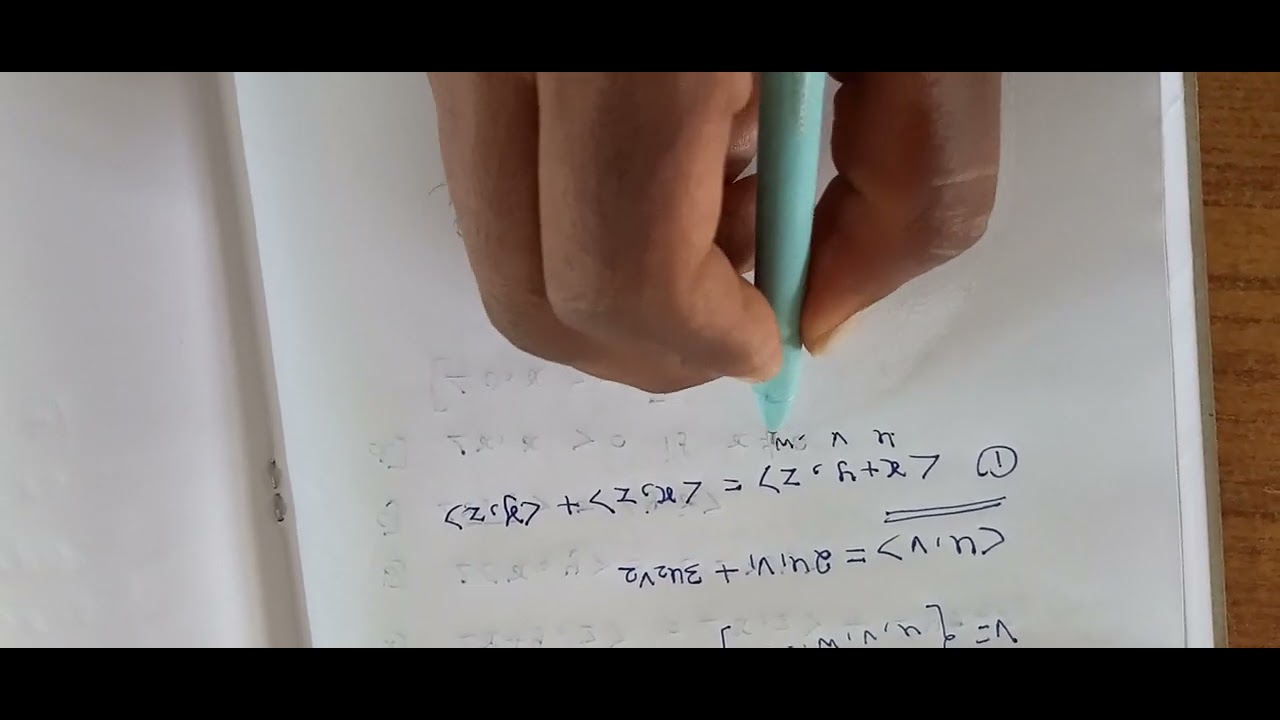 V = { u, v, w,
<u, v> = 2u1v1 + 3u2v2
① <x+y, z> = <x, z> + <y, z>
u v w